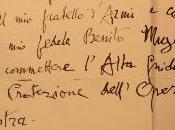 l mio fratello d'Armi e c
mio fedele Benito Mus
commettere l'Alta Guida
Protezione dell'Oper
stra.